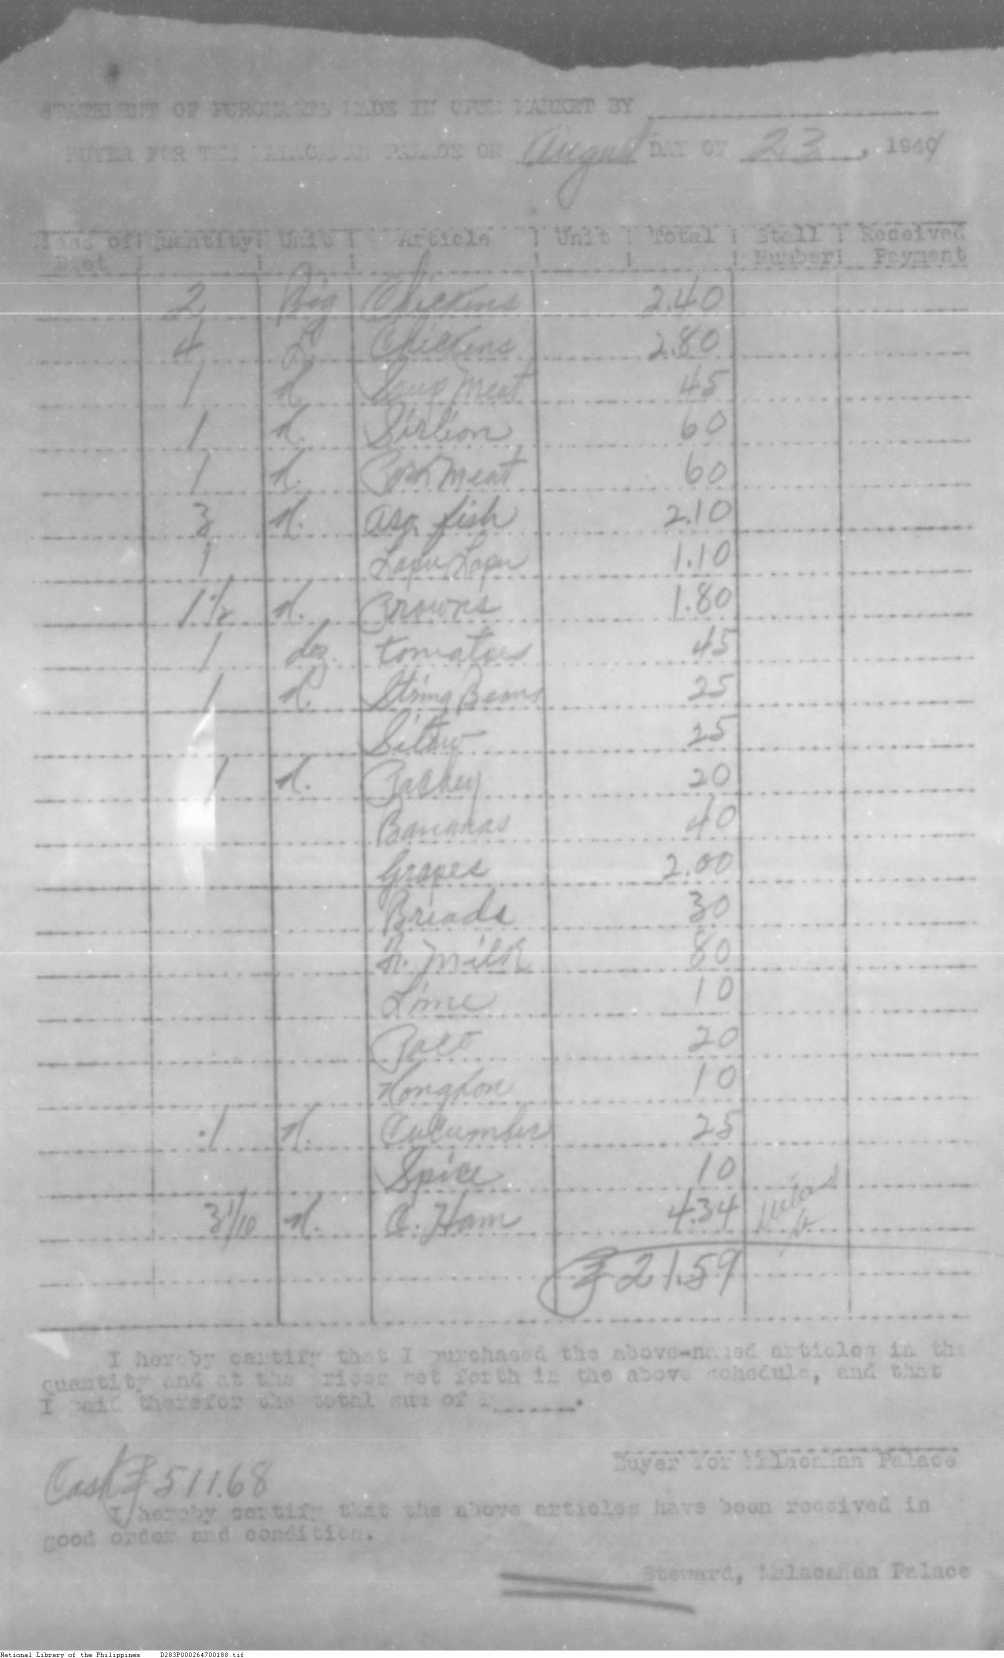 STATEMENT OF PURCHASES MADE IN OPEN MARKET BY
BUYER FOR THE MALACAÑAN PALACE ON August DAY OF 23, 1940
Kind of Quantity Unit Article Unit Total Stall Received
Number Payment
2 Big Chickens 2.40
4 Chickens 2.80
1 K. Soup Meat 45
1 K. Sirlion 60
1 K. Pork Meat 60
3 K. Asg. fish 2.10
1 Lapu Lapu 1.10
1 1/2 K. Prowns 1.80
1 doz. tomatoes 45
1 K. String Beans 25
Sitaw 25
1 K. 20
Bananas 40
Grapes 2.00
Breads 30
Fr. Milk 80
Lime 10
20
Kongkon 10
1 K. Cucumber 25
Spice 10
3 1/10 K. C. Ham 4.34
₱ 21.59
I hereby certify that I purchased the above-named articles in the
quantity and at the prices set forth in the above schedule, and that
I paid therefor the total sum of ₱
Buyer for Malacañan Palace
Cash ₱ 511.68
I hereby certify that the above articles have been received in
good order and condition.
Steward, Malacañan Palace
National Library of the Philippines D283P000264700188.tif